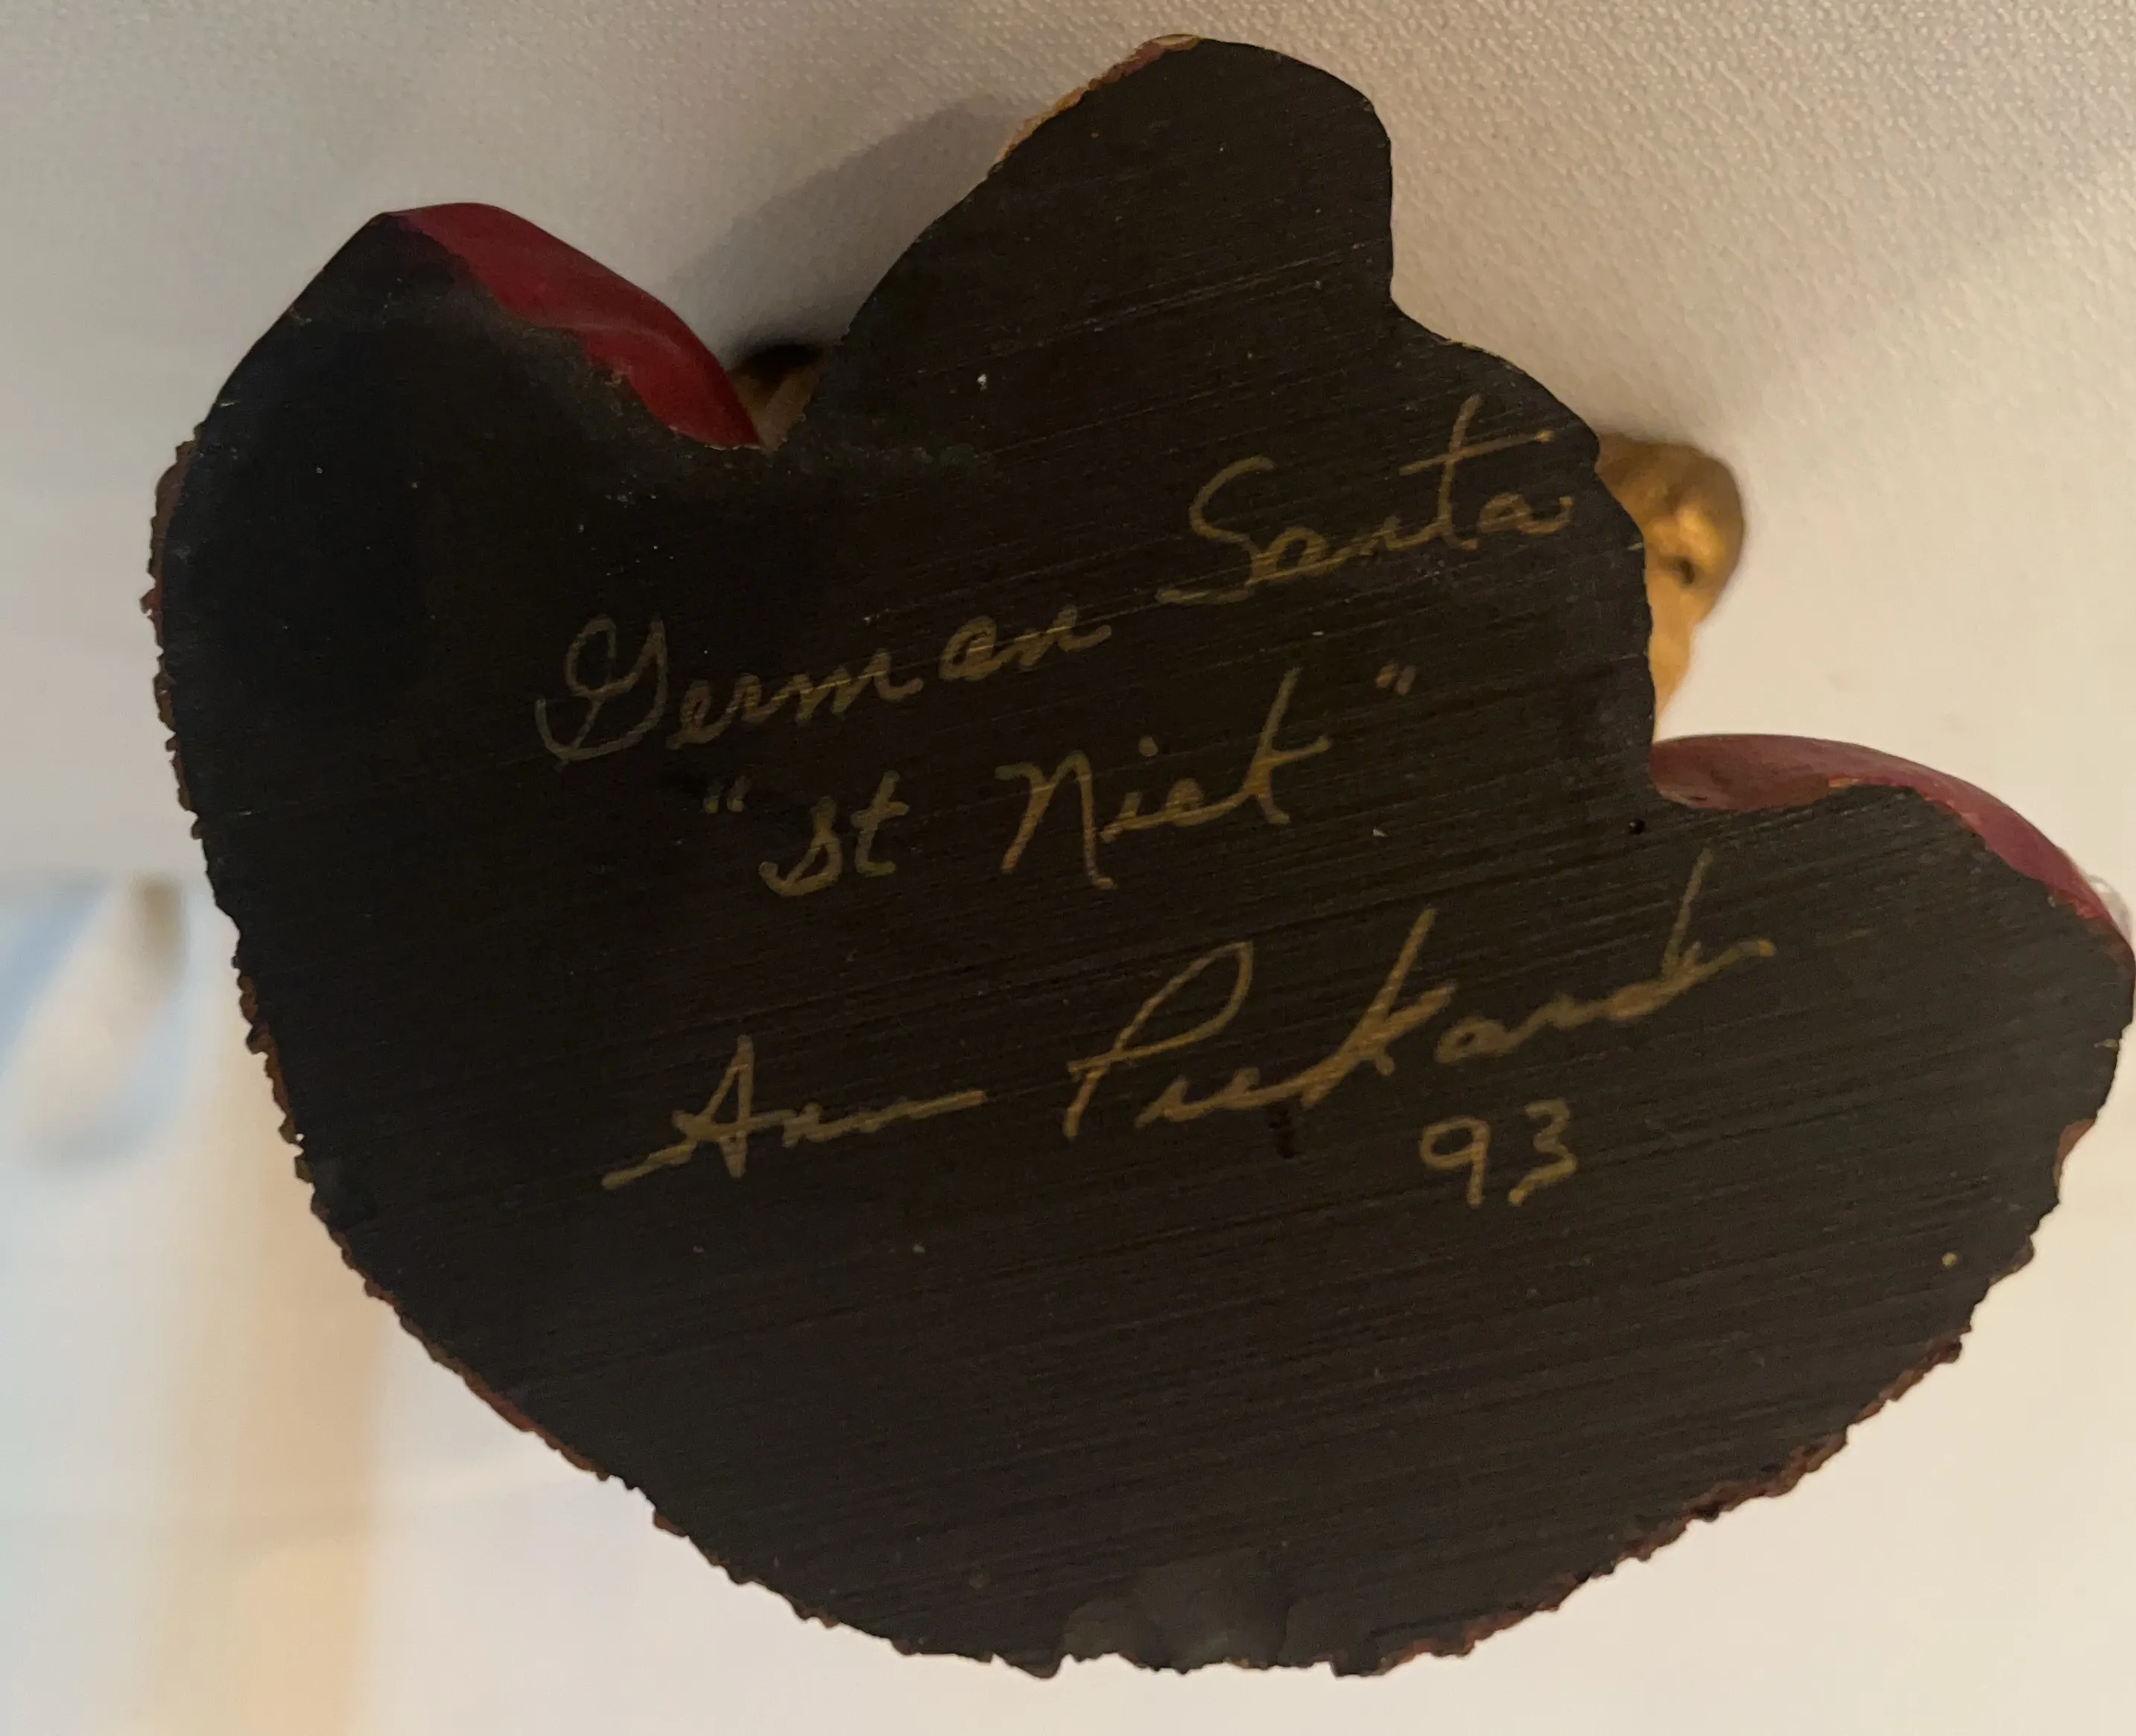 German Santa
"St Nick"
Ann Pickard
93